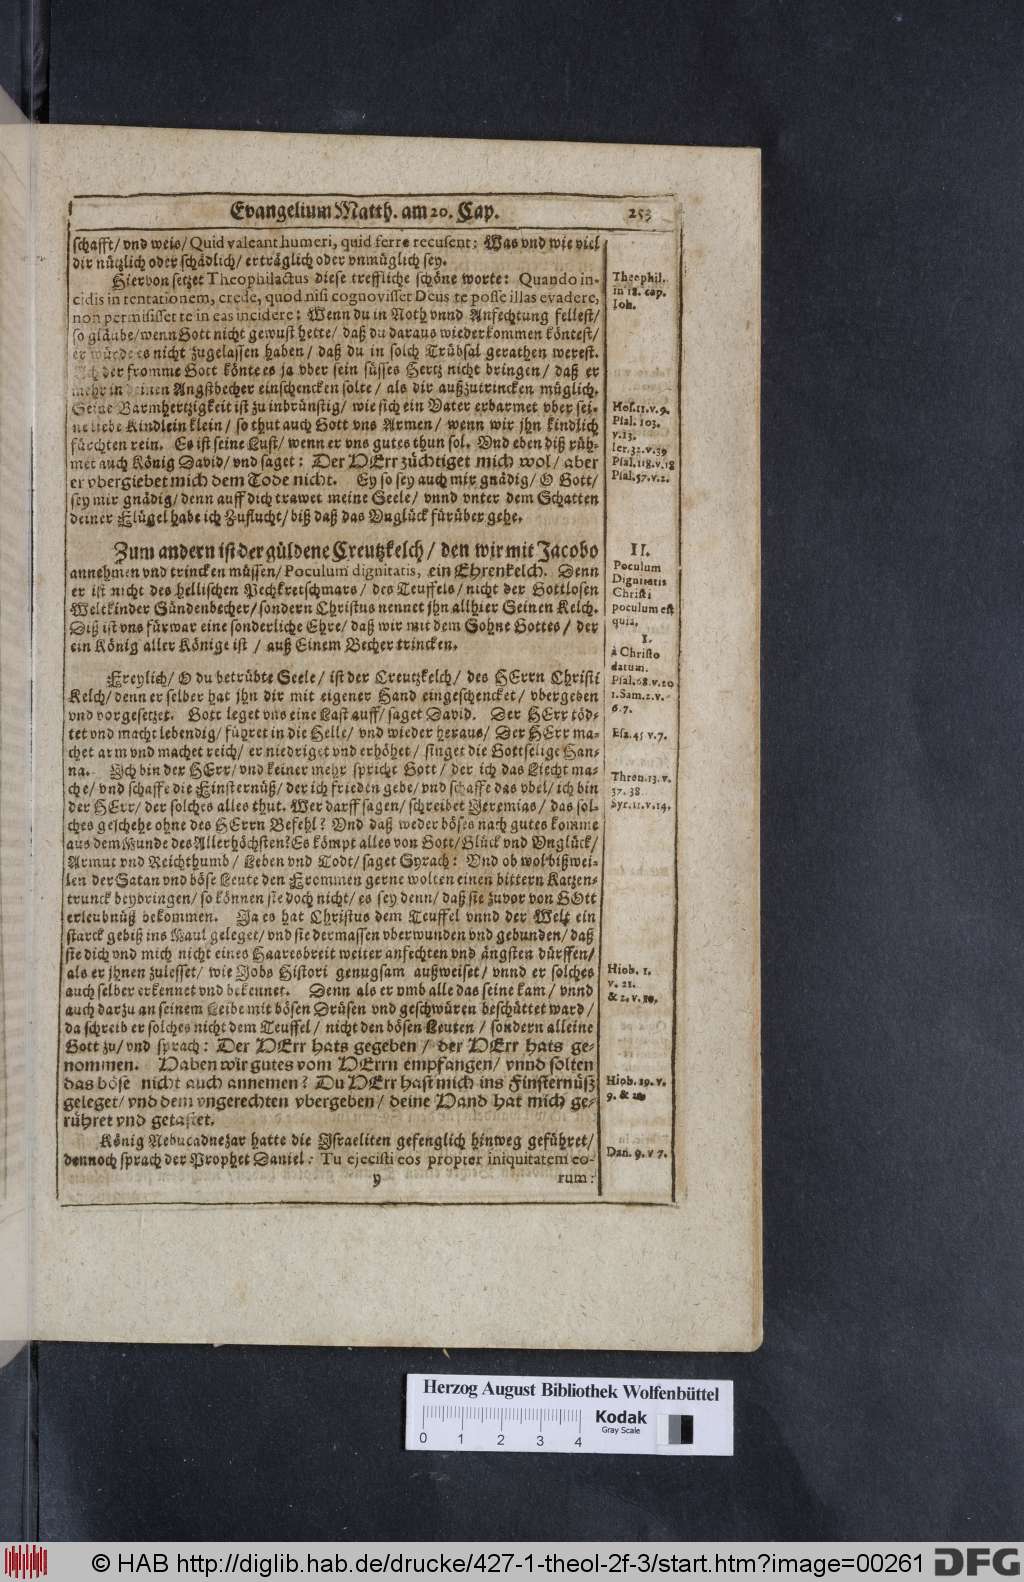 Evangelium Matth. am 20. Cap.
253
schafft/ vnd weis/ Quid valeant humeri, quid ferre recusent: Was vnd wie viel
dir nützlich oder schädlich/ erträglich oder vnmüglich sey.
Hiervon setzet Theophilactus diese treffliche schöne worte: Quando in-
cidis in tentationem, crede, quod nisi cognovisset Deus te posse illas evadere,
non permisisset te in eas incidere: Wenn du in Noth vnnd Anfechtung fellest/
so gläube/ wenn Gott nicht gewust hette/ daß du daraus wiederkommen köntest/
er würde es nicht zugelassen haben/ daß du in solch Trübsal gerathen werest.
Ach der fromme Gott köntees ja vber sein süsses Hertz nicht bringen/ daß er
mehr in deinen Angstbecher einschencken solte/ als dir außzutrincken müglich.
Seine Barmhertzigkeit ist zu inbrünstig/ wie sich ein Vater erbarmet vber sei-
ne liebe Kindlein klein/ so thut auch Gott vns Armen/ wenn wir jhn kindlich
fürchten rein. Es ist seine Lust/ wenn er vns gutes thun sol. Vnd eben diß rüh-
met auch König David/ vnd saget: Der HErr züchtiget mich wol/ aber
er vbergiebet mich dem Tode nicht. Ey so sey auch mir gnädig/ O Gott/
sey mir gnädig/ denn auff dich trawet meine Seele/ vnnd vnter dem Schatten
deiner Flügel habe ich Zuflucht/ biß daß das Vnglück fürüber gehe.
Zum andern ist der güldene Creutzkelch/ den wir mit Jacobo
annehmen vnd trincken müssen/ Poculum dignitatis, ein Ehrenkelch. Denn
er ist nicht des hellischen Pechkretschmars/ des Teuffels/ nicht der Gottlosen
Weltkinder Sündenbecher/ sondern Christus nennet jhn allhier Seinen Kelch.
Diß ist vns fürwar eine sonderliche Ehre/ daß wir mit dem Sohne Gottes/ der
ein König aller Könige ist/ auß Einem Becher trincken.
Freylich/ O du betrübte Seele/ ist der Creutzkelch/ des HErrn Christi
Kelch/ denn er selber hat jhn dir mit eigener Hand eingeschencket/ vbergeben
vnd vorgesetzet. Gott leget vns eine Last auff/ saget David. Der HErr töd-
tet vnd macht lebendig/ führet in die Helle/ vnd wieder heraus/ Der HErr ma-
chet arm vnd machet reich/ er niedriget vnd erhöhet/ singet die Gottselige Han-
na. Ich bin der HErr/ vnd keiner mehr spricht Gott/ der ich das Liecht ma-
che/ vnd schaffe die Finsternüß/ der ich frieden gebe/ vnd schaffe das vbel/ ich bin
der HErr/ der solches alles thut. Wer darff sagen/ schreibet Jeremias/ das sol-
ches geschehe ohne des HErrn Befehl? Vnd daß weder böses nach gutes komme
aus dem Munde des Allerhöchsten? Es kömpt alles von Gott/ Glück vnd Vnglück/
Armut vnd Reichthumb/ Leben vnd Todt/ saget Syrach: Vnd ob wol bißwei-
len der Satan vnd böse Leute den Frommen gerne wolten einen bittern Katzen-
trunck beybringen/ so können sie doch nicht/ es sey denn/ daß sie zuvor von GOtt
erleubnüß bekommen. Ja es hat Christus dem Teuffel vnnd der Welt ein
starck gebiß ins Maul geleget/ vnd sie dermassen vberwunden vnd gebunden/ daß
sie dich vnd mich nicht eines Haaresbreit weiter anfechten vnd ängsten dürffen/
als er jhnen zulesset/ wie Jobs Histori genugsam außweiset/ vnnd er solches
auch selber erkennet vnd bekennet. Denn als er vmb alle das seine kam/ vnnd
auch darzu an seinem Leibe mit bösen Drüsen vnd geschwüren beschüttet ward/
da schreib er solches nicht dem Teuffel/ nicht den bösen Leuten/ sondern alleine
Gott zu/ vnd sprach: Der HErr hats gegeben/ der HErr hats ge-
nommen. Haben wir gutes vom HErrn empfangen/ vnnd solten
das böse nicht auch annemen? Du HErr hast mich ins Finsternüß
geleget/ vnd dem vngerechten vbergeben/ deine Hand hat mich ge-
rühret vnd getastet.
König Nebucadnezar hatte die Israeliten gefenglich hinweg geführet/
dennoch sprach der Prophet Daniel: Tu ejecisti eos propter iniquitatem eo-
y
rum:
Theophil.
in 18. cap.
Joh.
Hos.11.v.9.
Psal. 103.
v.13.
Ier.32.v.39
Psal.118.v.18
Psal.57.v.2.
II.
Poculum
Dignitatis
Christi
poculum est
quia,
1.
à Christo
datum.
Psal.68.v.20
1.Sam.2.v.
6.7.
Esa.45 v.7.
Thren.13.v.
37. 38.
Syr.11.v.14.
Hiob. 1.
v. 21.
& 2. v. 10.
Hiob. 19. v.
9. & 21
Dan. 9. v 7.
Herzog August Bibliothek Wolfenbüttel
Kodak
Gray Scale
0 1 2 3 4
© HAB http://diglib.hab.de/drucke/427-1-theol-2f-3/start.htm?image=00261
DFG